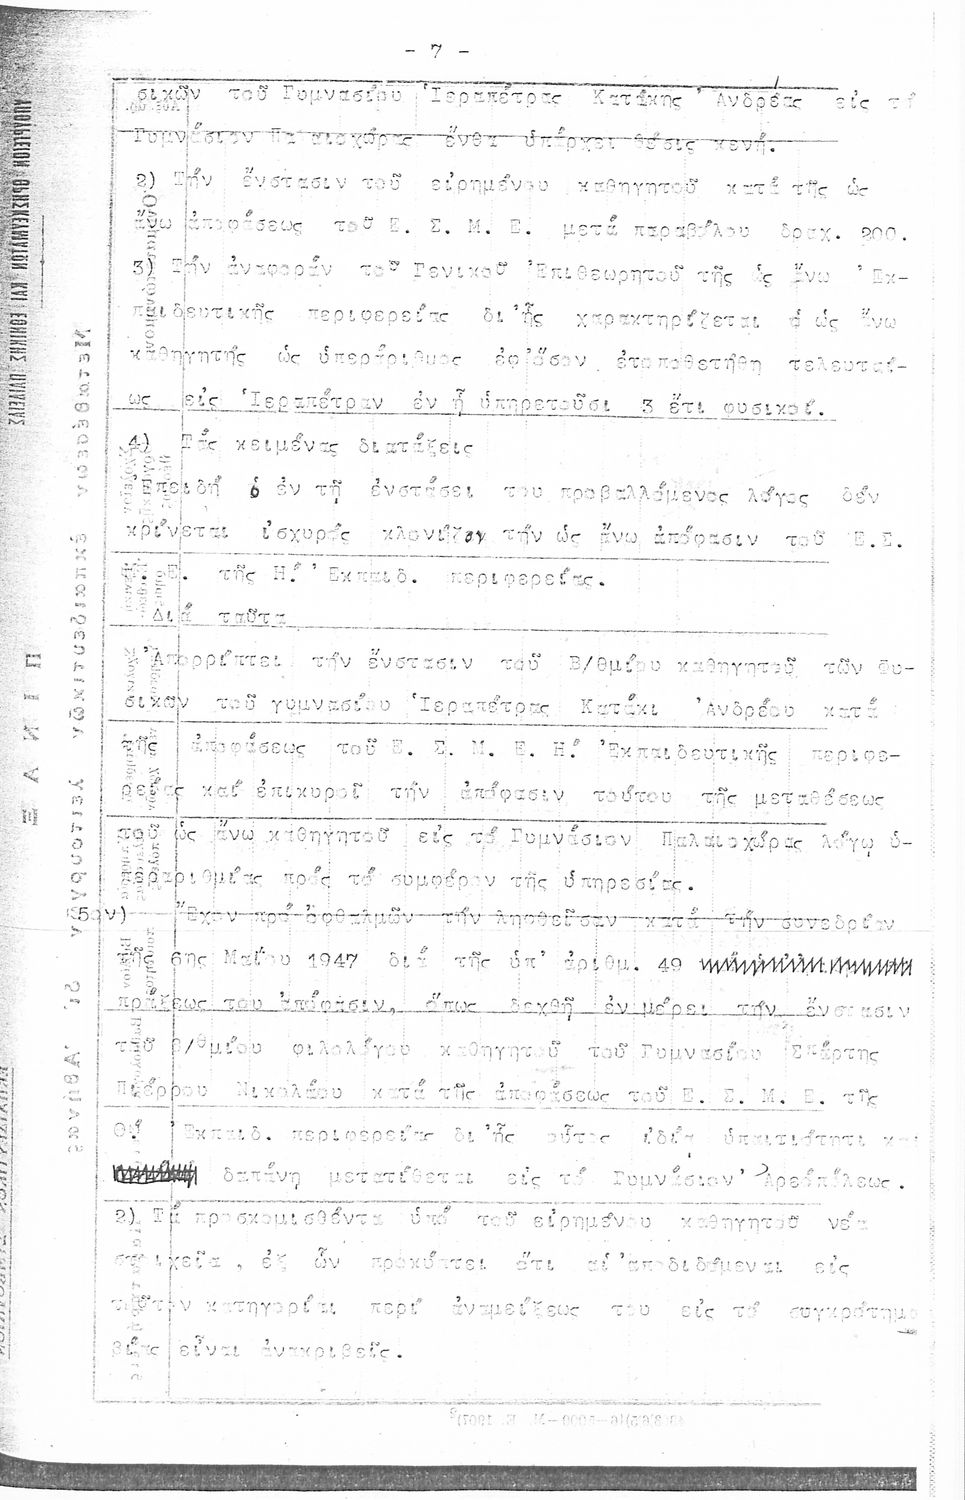 - 7 -
σικῶν τοῦ Γυμνασίου Ἱεραπέτρας Κατάκης Ἀνδρέας εἰς τό
Γυμνάσιον Παλαιοχώρας ἔνθα ὑπάρχει θέσις κενή.
2) Τήν ἔνστασιν τοῦ εἰρημένου καθηγητοῦ κατά τῆς ὡς
ἄνω ἀποφάσεως τοῦ Ε. Σ. Μ. Ε. μετά παραβόλου δραχ. 200.
3) Τήν ἀναφοράν τοῦ Γενικοῦ Ἐπιθεωρητοῦ τῆς ὡς ἄνω Ἐκ-
παιδευτικῆς περιφερείας δι'ἧς χαρακτηρίζεται ὁ ὡς ἄνω
καθηγητής ὡς ὑπεράριθμος ἐφ'ὅσον ἐτοποθετήθη τελευταί-
ως εἰς Ἱεραπέτραν ἐν ᾗ ὑπηρετοῦσι 3 ἔτι φυσικοί.
4) Τάς κειμένας διατάξεις
Ἐπειδή ὁ ἐν τῇ ἐνστάσει του προβαλλόμενος λόγος δέν
κρίνεται ἰσχυρός κλονίζον τήν ὡς ἄνω ἀπόφασιν τοῦ Ε.Σ.
Μ. Ε. τῆς Η! Ἐκπαιδ. περιφερείας.
Διά ταῦτα
Ἀπορρίπτει τήν ἔνστασιν τοῦ Β/θμίου καθηγητοῦ τῶν Φυ-
σικῶν τοῦ γυμνασίου Ἱεραπέτρας Κατάκι Ἀνδρέου κατά
τῆς ἀποφάσεως τοῦ Ε. Σ. Μ. Ε. Η! Ἐκπαιδευτικῆς περιφε-
ρείας καί ἐπικυροῖ τήν ἀπόφασιν τούτου τῆς μεταθέσεως
τοῦ ὡς ἄνω καθηγητοῦ εἰς τό Γυμνάσιον Παλαιοχώρας λόγῳ ὑ-
περαριθμίας πρός τό συμφέρον τῆς ὑπηρεσίας.
5ον) Ἔχον πρό ὀφθαλμῶν τήν ληφθεῖσαν κατά τήν συνεδρίαν
τῆς 6ης Μαΐου 1947 διά τῆς ὑπ' ἀριθμ. 49
πράξεως του ἀπόφασιν, ὅπως δεχθῇ ἐν μέρει τήν ἔνστασιν
τοῦ β/θμίου φιλολόγου καθηγητοῦ τοῦ Γυμνασίου Σπάρτης
Πιέρρου Νικολάου κατά τῆς ἀποφάσεως τοῦ Ε. Σ. Μ. Ε. τῆς
Θ! Ἐκπαιδ. περιφερείας δι'ἧς οὗτος ἰδίᾳ ὑπαιτιότητι καί
δαπάνῃ μετατίθεται εἰς τό Γυμνάσιον Ἀρεοπόλεως.
2) Τά προσκομισθέντα ὑπό τοῦ εἰρημένου καθηγητοῦ νέα
στοιχεῖα, ἐξ ὧν προκύπτει ὅτι αἱ ἀποδιδόμεναι εἰς
τοῦτον κατηγορίαι περί ἀναμείξεως του εἰς τό συγκρότημα
βίας εἶναι ἀνακριβεῖς.